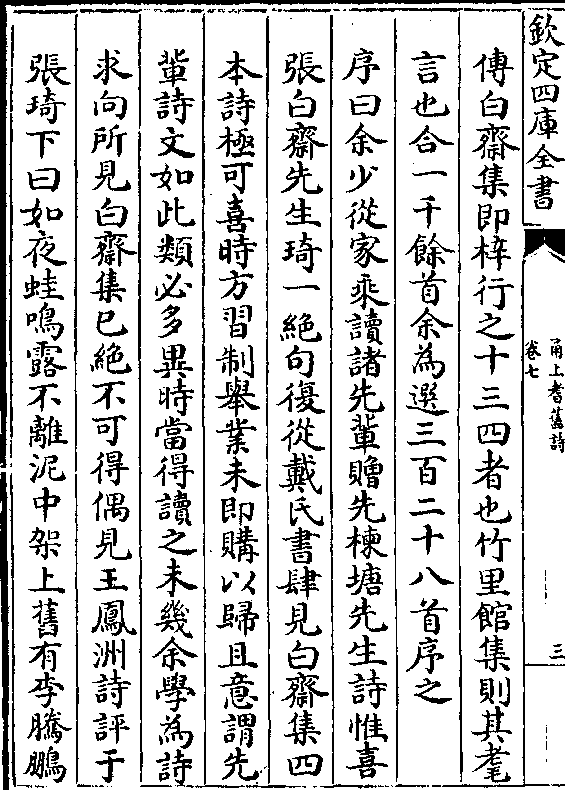 欽定四庫全書
甬上耆舊詩
卷七
三
傳白齋集即梓行之十三四者也竹里館集則其耄
言也合一千餘首余為選三百二十八首序之
序曰余少從家乘讀諸先輩贈先棟塘先生詩惟喜
張白齋先生琦一絶句復從戴氏書肆見白齋集四
本詩極可喜時方習制舉業未即購以歸且意謂先
軰詩文如此類必多異時當得讀之未幾余學為詩
求向所見白齋集已絶不可得偶見王鳳洲詩評于
張琦下曰如夜蛙鳴露不離泥中架上舊有李騰鵬